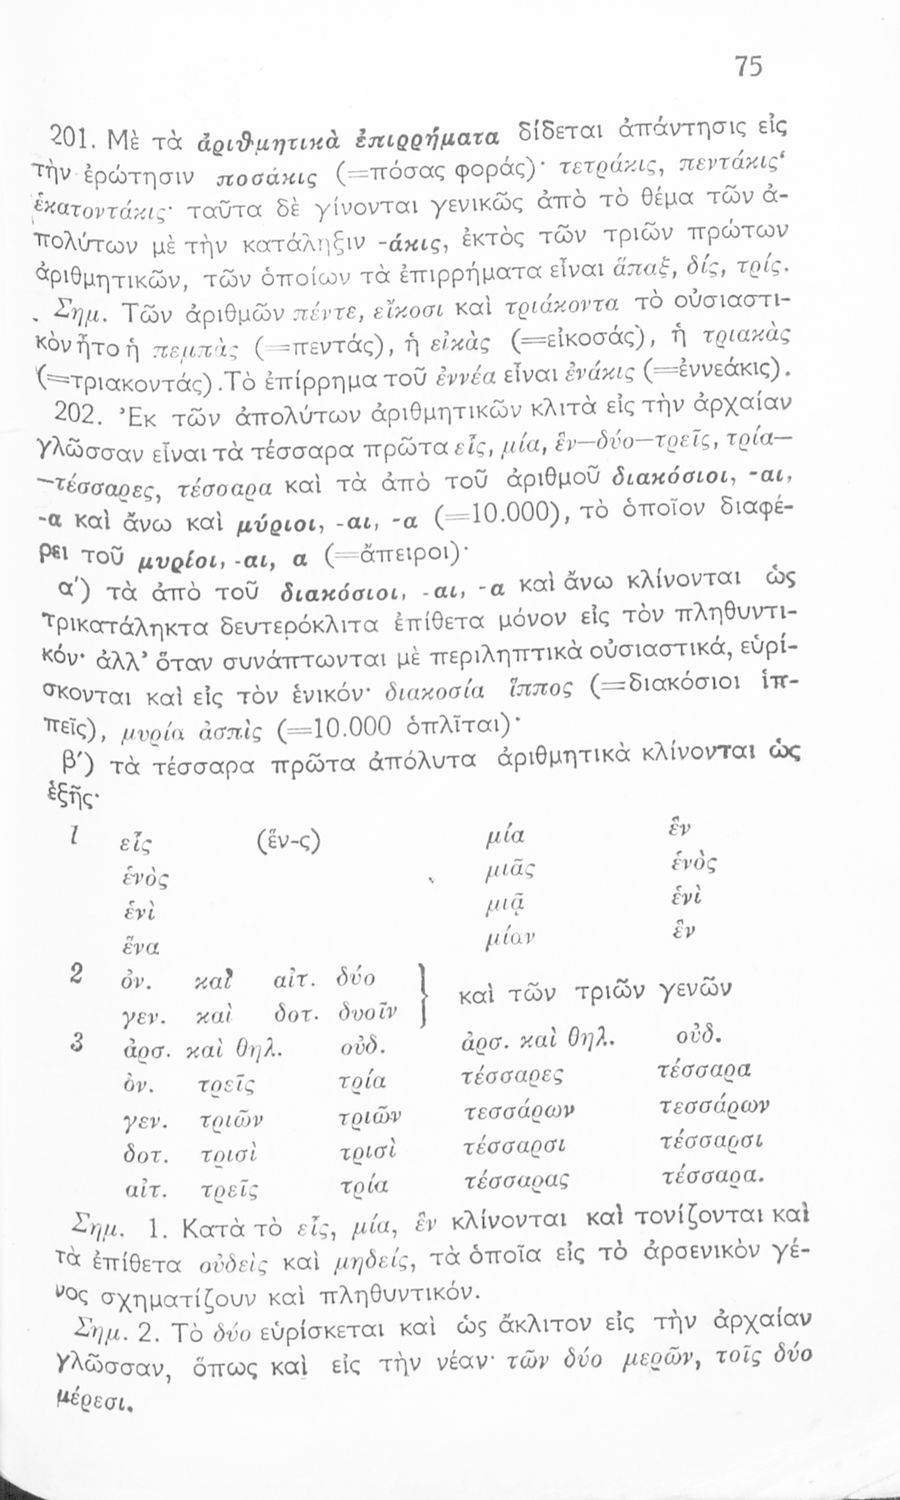 75
201. Μὲ τὰ ἀριθμητικὰ ἐπιρρήματα δίδεται ἀπάντησις εἰς
τὴν ἐρώτησιν ποσάκις (=πόσας φοράς)· τετράκις, πεντάκις·
ἑκατοντάκις· ταῦτα δὲ γίνονται γενικῶς ἀπὸ τὸ θέμα τῶν ἀ-
πολύτων μὲ τὴν κατάληξιν -άκις, ἐκτὸς τῶν τριῶν πρώτων
ἀριθμητικῶν, τῶν ὁποίων τὰ ἐπιρρήματα εἶναι ἅπαξ, δίς, τρίς.
Σημ. Τῶν ἀριθμῶν πέντε, εἴκοσι καὶ τριάκοντα τὸ οὐσιαστι-
κὸν ἦτο ἡ πεμπὰς (=πεντάς), ἡ εἰκὰς (=εἰκοσάς), ἡ τριακὰς
(=τριακοντάς). Τὸ ἐπίρρημα τοῦ ἐννέα εἶναι ἐνάκις (=ἐννεάκις).
202. Ἐκ τῶν ἀπολύτων ἀριθμητικῶν κλιτὰ εἰς τὴν ἀρχαίαν
γλῶσσαν εἶναι τὰ τέσσαρα πρῶτα εἷς, μία, ἓν—δύο—τρεῖς, τρία—
—τέσσαρες, τέσσαρα καὶ τὰ ἀπὸ τοῦ ἀριθμοῦ διακόσιοι, -αι,
-α καὶ ἄνω καὶ μύριοι, -αι, -α (=10.000), τὸ ὁποῖον διαφέ-
ρει τοῦ μυρίοι, -αι, α (=ἄπειροι)·
α΄) τὰ ἀπὸ τοῦ διακόσιοι, -αι, -α καὶ ἄνω κλίνονται ὡς
τρικατάληκτα δευτερόκλιτα ἐπίθετα μόνον εἰς τὸν πληθυντι-
κόν· ἀλλ' ὅταν συνάπτωνται μὲ περιληπτικὰ οὐσιαστικά, εὑρί-
σκονται καὶ εἰς τὸν ἑνικόν· διακοσία ἵππος (=διακόσιοι ἱπ-
πεῖς), μυρία ἀσπὶς (=10.000 ὁπλῖται)·
β΄) τὰ τέσσαρα πρῶτα ἀπόλυτα ἀριθμητικὰ κλίνονται ὡς
ἑξῆς·
1 εἷς (ἕν-ς) μία ἓν
ἑνὸς μιᾶς ἑνὸς
ἑνὶ μιᾷ ἑνὶ
ἕνα μίαν ἓν
2 ὀν. καὶ αἰτ. δύο } καὶ τῶν τριῶν γενῶν
γεν. καὶ δοτ. δυοῖν
3 ἀρσ. καὶ θηλ. οὐδ. ἀρσ. καὶ θηλ. οὐδ.
ὀν. τρεῖς τρία τέσσαρες τέσσαρα
γεν. τριῶν τριῶν τεσσάρων τεσσάρων
δοτ. τρισὶ τρισὶ τέσσαρσι τέσσαρσι
αἰτ. τρεῖς τρία τέσσαρας τέσσαρα.
Σημ. 1. Κατὰ τὸ εἷς, μία, ἓν κλίνονται καὶ τονίζονται καὶ
τὰ ἐπίθετα οὐδεὶς καὶ μηδείς, τὰ ὁποῖα εἰς τὸ ἀρσενικὸν γέ-
νος σχηματίζουν καὶ πληθυντικόν.
Σημ. 2. Τὸ δύο εὑρίσκεται καὶ ὡς ἄκλιτον εἰς τὴν ἀρχαίαν
γλῶσσαν, ὅπως καὶ εἰς τὴν νέαν· τῶν δύο μερῶν, τοῖς δύο
μέρεσι.